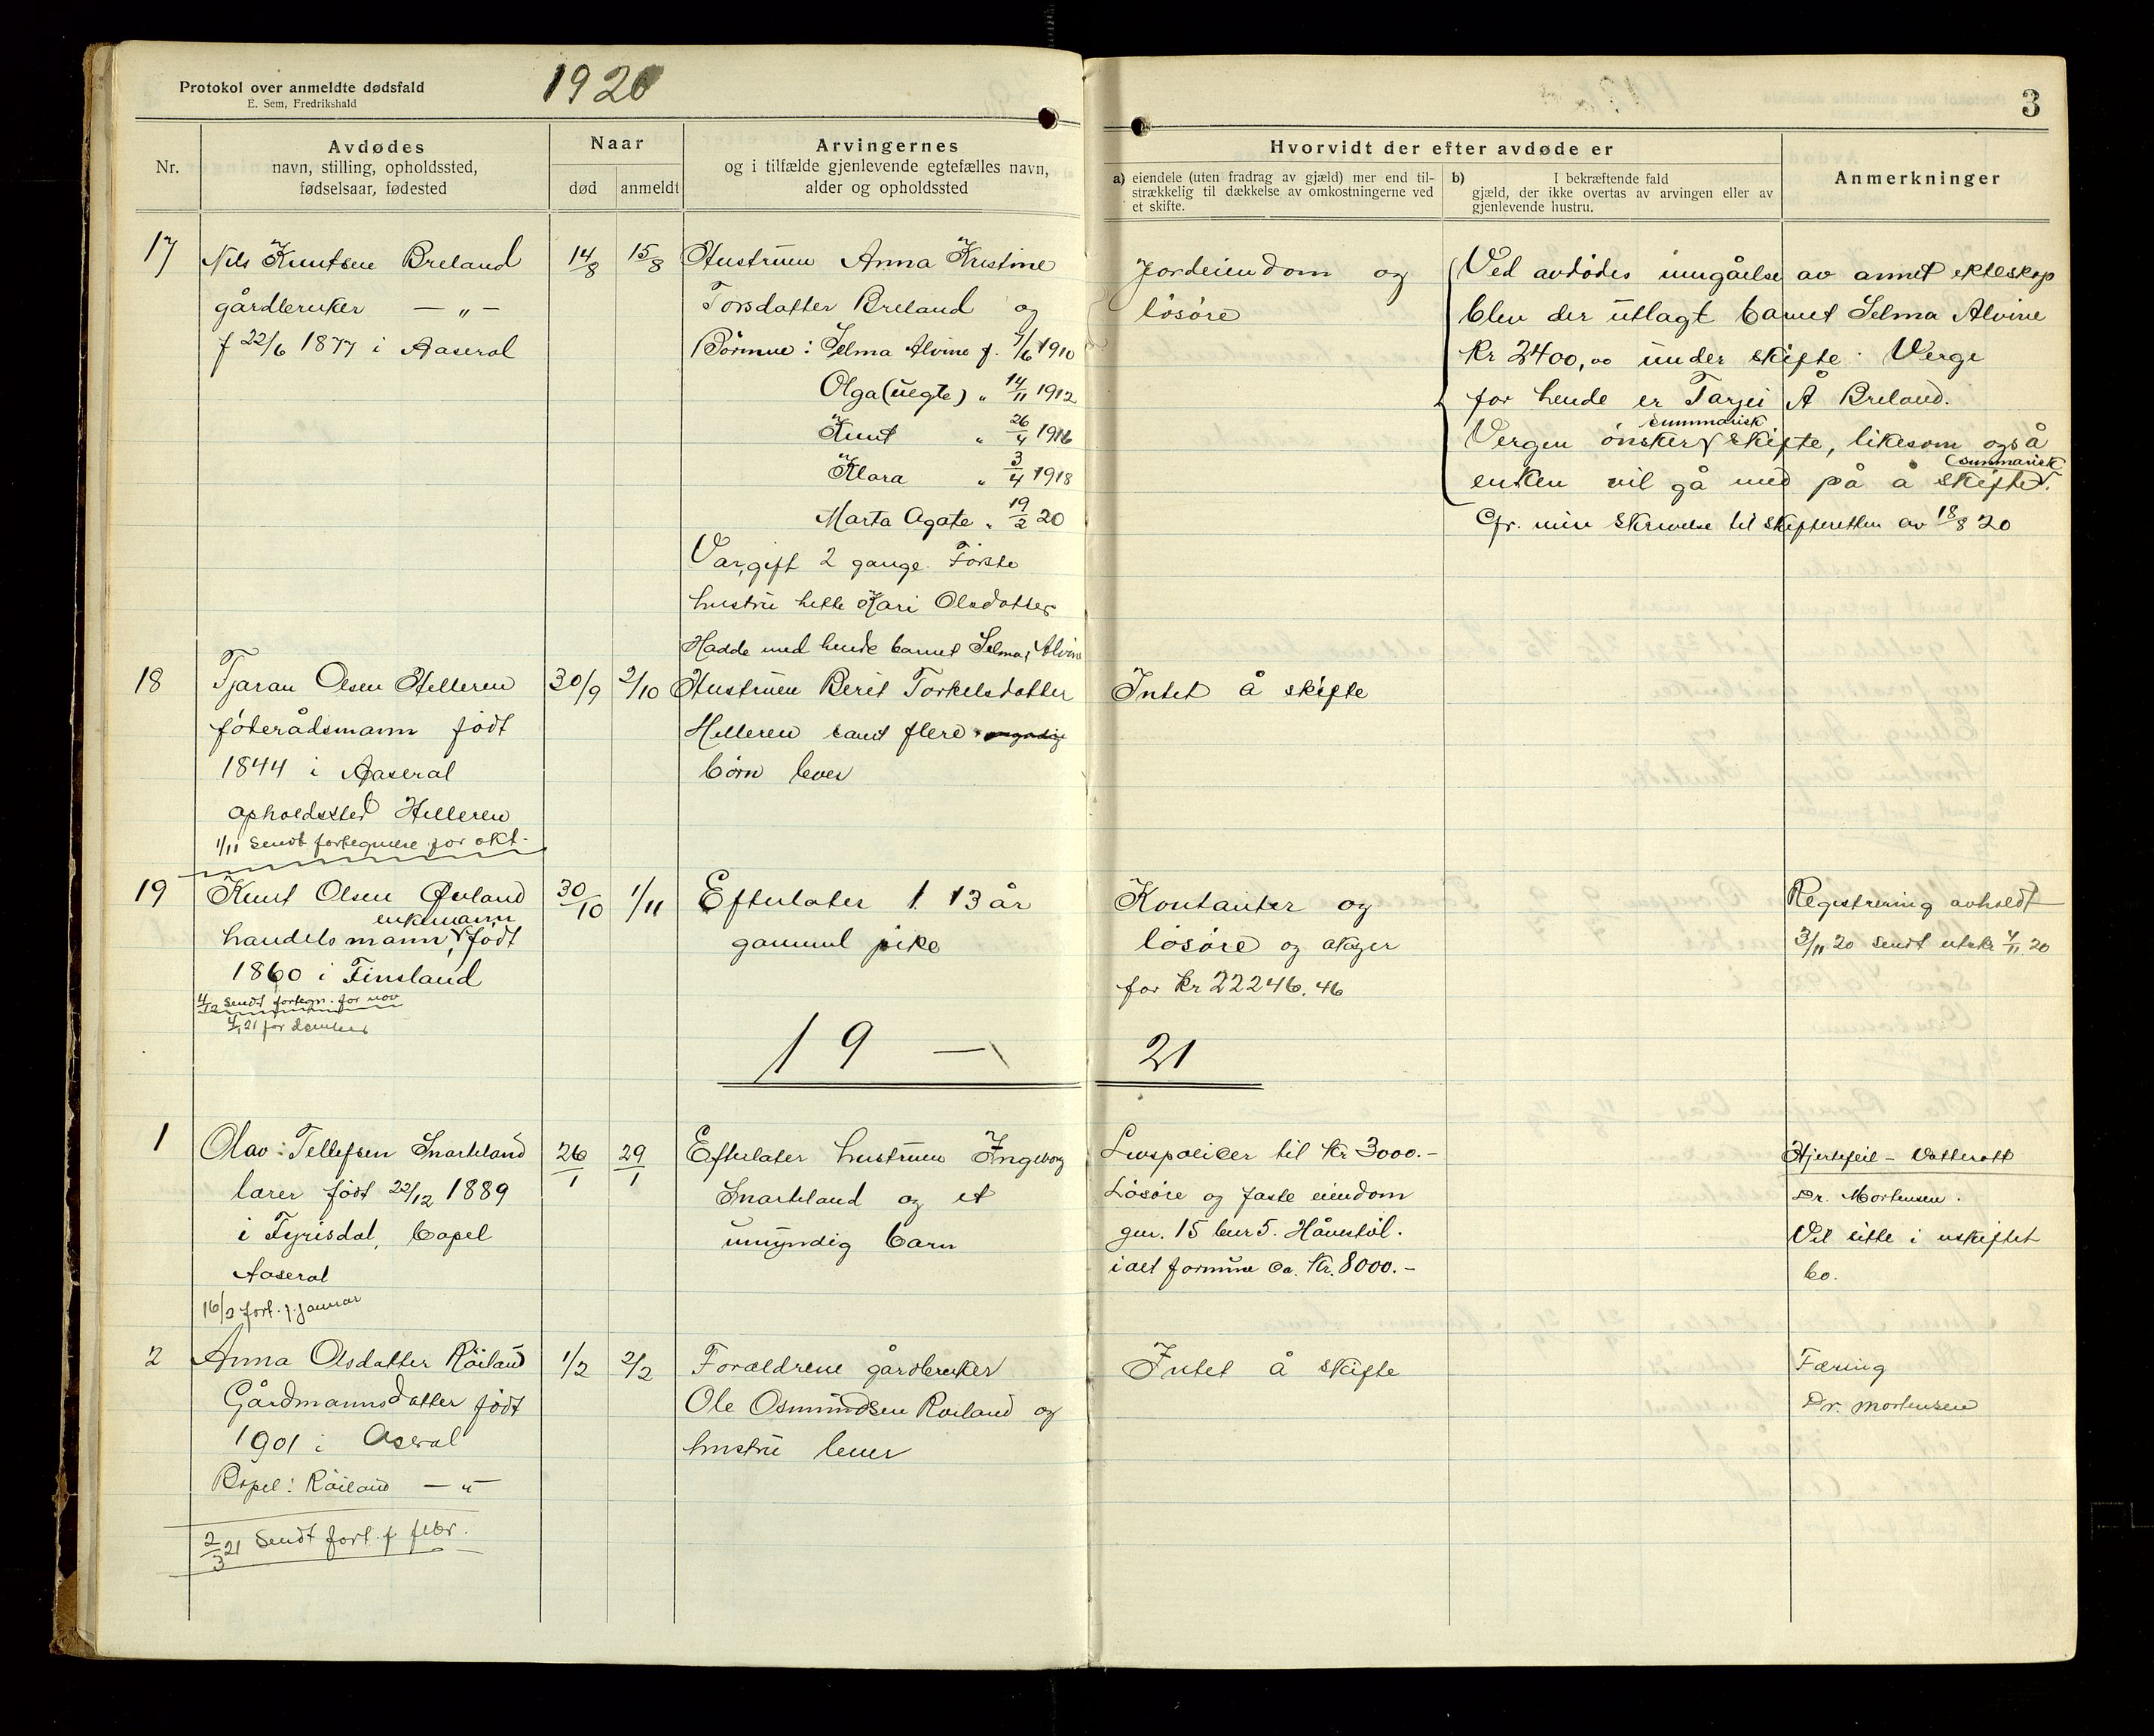 Protokol over anmeldte dødsfald
E. Sem, Fredrikshald
1920
3
Nr.
Avdødes
navn, stilling, opholdssted,
fødselsaar, fødested
Naar
død
anmeldt
Arvingernes
og i tilfælde gjenlevende egtefælles navn,
alder og opholdssted
Hvorvidt der efter avdøde er
a) eiendele (uten fradrag av gjæld) mer end til-
strækkelig til dækkelse av omkostningerne ved
et skifte.
b) I bekræftende fald
gjæld, der ikke overtas av arvingen eller av
gjenlevende hustru.
Anmerkninger
17
Nils Knutsen Breland
gårdbruker — „ —
f 22/6 1877 i Aaseral
14/8
15/8
Hustruen Anna Kristine
Torsdatter Breland og
Børnene: Selma Alvine f. 7/6 1910
Olga (uegte) „ 14/11 1912
Knut „ 26/4 1916
Klara „ 3/4 1918
Marta Agate „ 19/2 20
Var gift 2 gange. Første
hustru hette Kari Olsdatter
Hadde med hende barnet Selma Alvine
Jordeiendom og
løsøre
Ved avdødes inngåelse av annet ekteskap
blev der utlagt barnet Selma Alvine
Kr 2400,00 under skifte. Verge
for hende er Tarjei Å Breland.
summarisk
Vergen ønsker skifte, likesom også
(summarisk
enken vil gå med på å skifte.
Cfr. min skrivelse til skifteretten av 18/8 20
18
Tjaran Olsen Helleren
føderådsmann født
1844 i Aaseral
opholdssted Helleren
1/11 sendt fortegnelse for okt.
30/9
2/10
Hustruen Berit Torkelsdatter
Helleren samt flere myndig
børn lever
Intet å skifte
19
Knut Olsen Øvland
enkemann
handelsmann, født
1860 i Finsland
4/12 sendt fortegn. for nov
4/1 21 for desember
30/10
1/11
Efterlater 1 13 år
gammel pike
Kontanter og
løsøre og aksjer
for Kr 22246.46
Registrering avholdt
3/11 20 sendt utskr 4/11 20
19 —
21
1
Olav Tellefsen Snarteland
lærer født 22/12 1889
i Fyrisdal, bopel
Aaseral
16/2 fort. f. januar
26/1
29/1
Efterlater hustruen Ingeborg
Snarteland og et
umyndig barn
Livspolicer til Kr 3000.-
Løsøre og faste eiendom
gnr. 15 bnr 5. Håverstøl.
ialt formue ca. Kr. 8000.-
Hjertefeil - Vattersott
Dr. Mortensen.
Vil sitte i uskiftet
bo.
2
Anna Olsdatter Røiland
Gårdmannsdatter født
1901 i Aseral
Bopel: Røiland — „
2/3 21 Sendt fort. f febr.
1/2
2/2
Forældrene gårdbruker
Ole Osmundsen Røiland og
hustru lever
Intet å skifte
Tæring
Dr. Mortensen